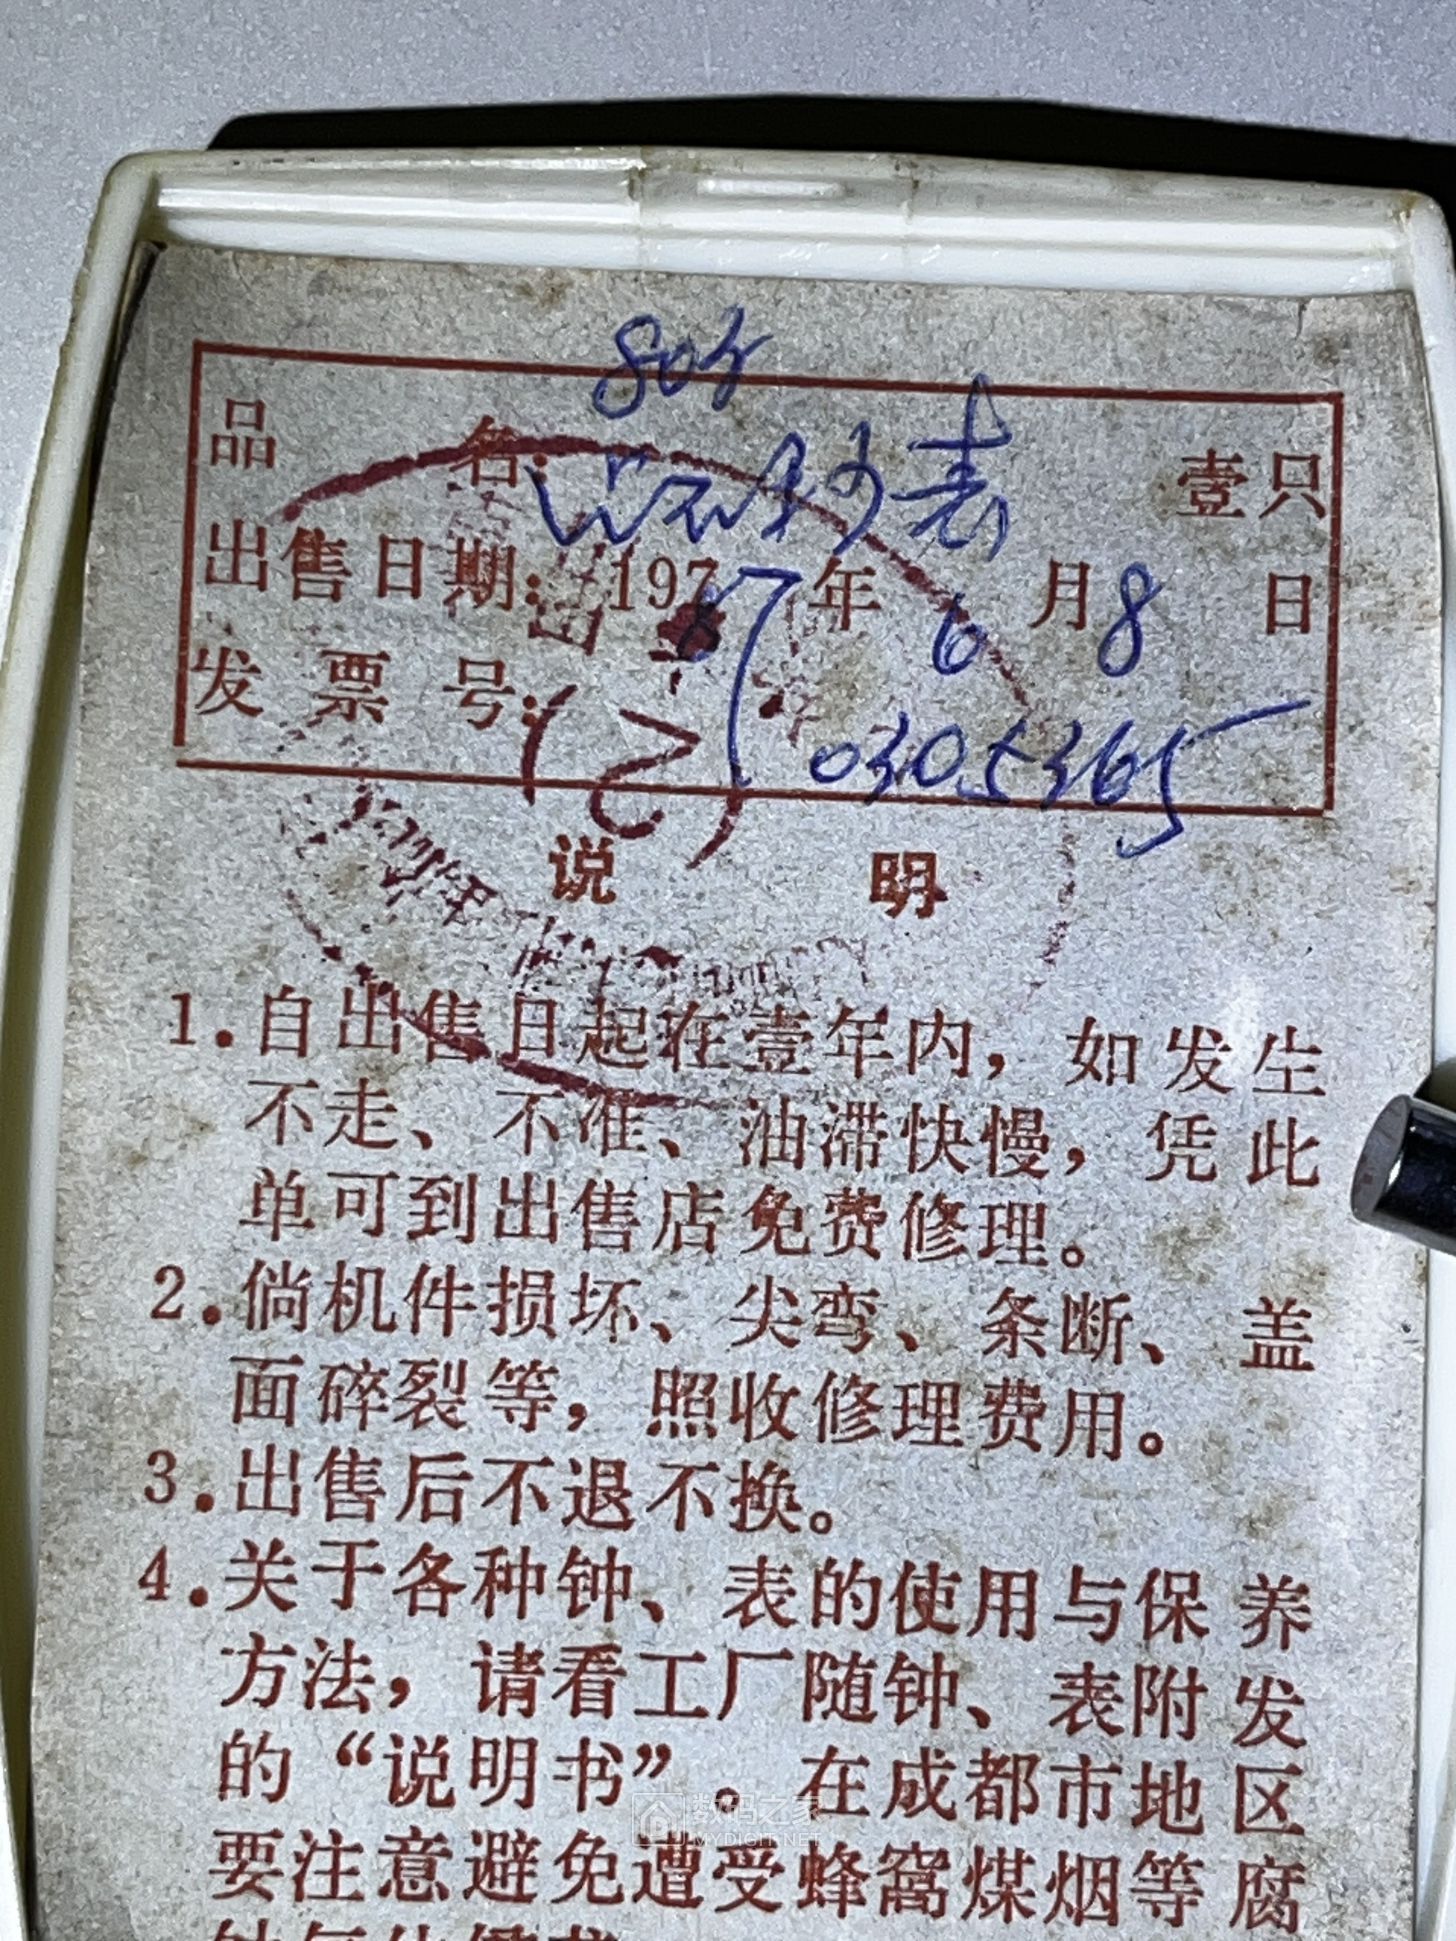 品 名: 表 壹只
出售日期: 1987年6月8日
发票号: 0305365
说 明
1.自出售日起在壹年内，如发生
不走、不准、油滞快慢，凭此
单可到出售店免费修理。
2.倘机件损坏、尖弯、条断、盖
面碎裂等，照收修理费用。
3.出售后不退不换。
4.关于各种钟、表的使用与保养
方法，请看工厂随钟、表附发
的“说明书”。在成都市地区
要注意避免遭受蜂窝煤烟等腐
数码之家
MYDIGIT.NET